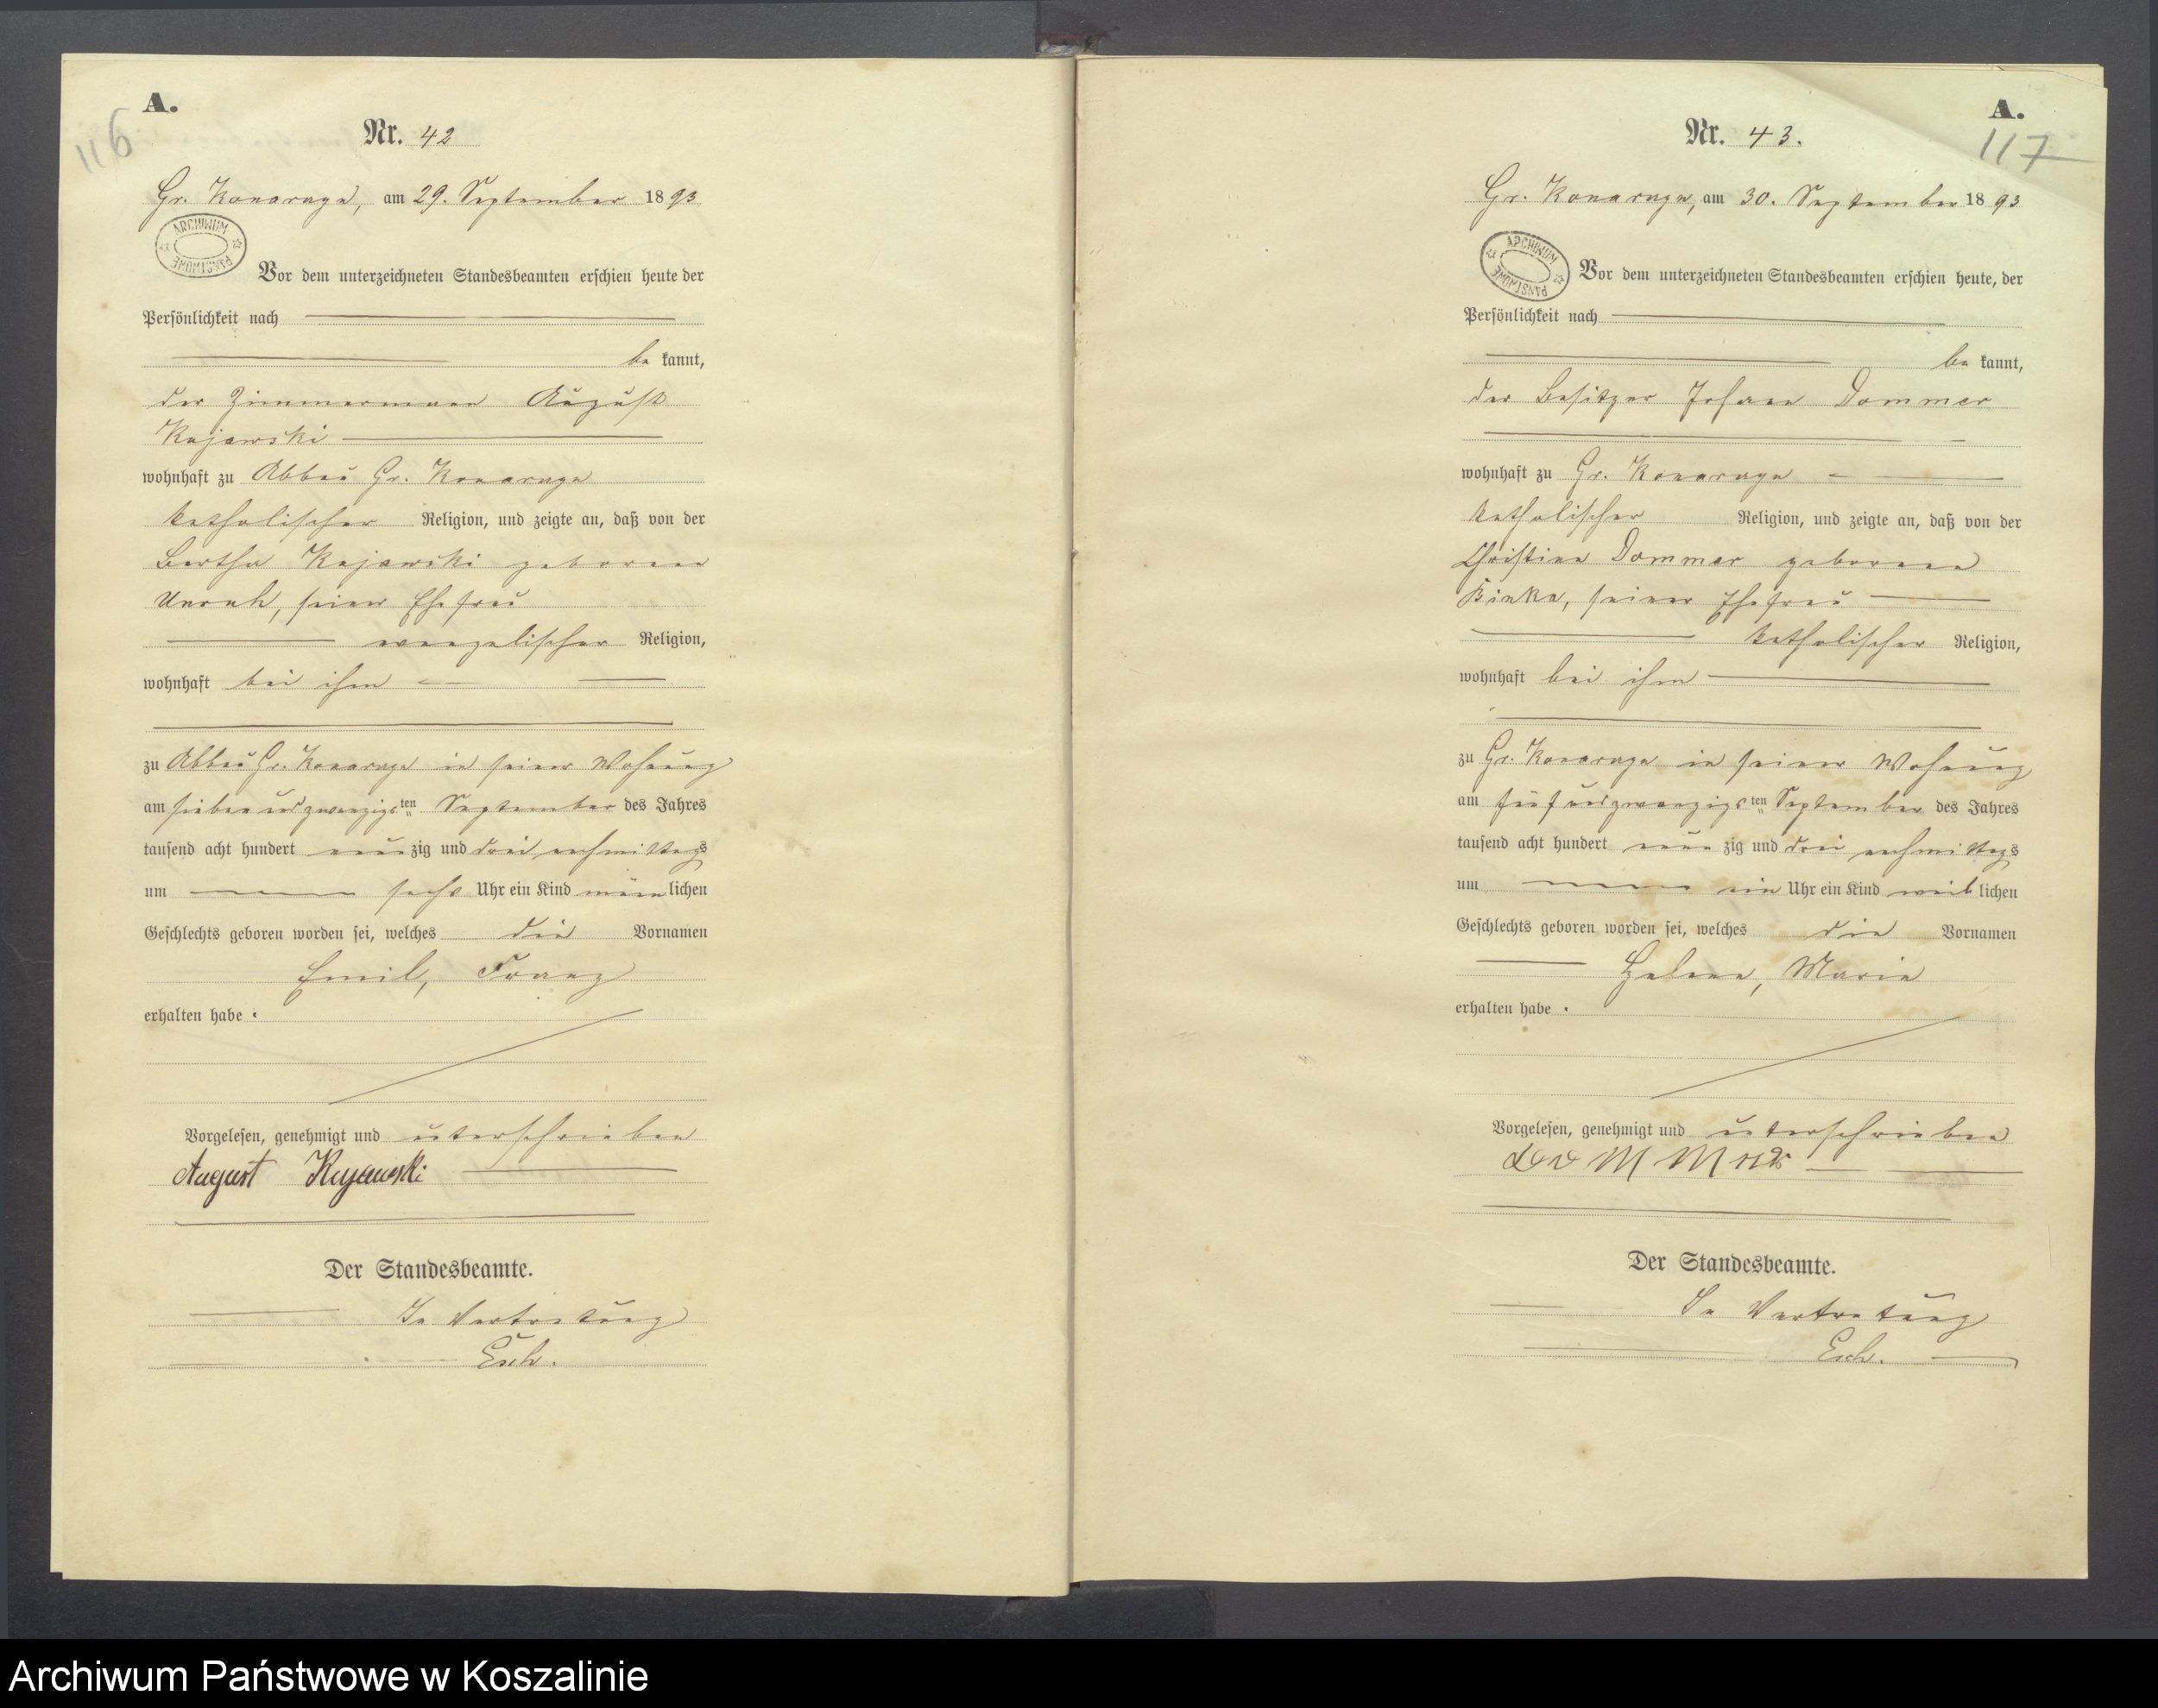 A.
116
Nr. 42
Gr. Konarzyn, am 29. September 1893
ARCHIWUM PAŃSTWOWE
Vor dem unterzeichneten Standesbeamten erschien heute der
Persönlichkeit nach
be kannt,
der Zimmermann August
Kujawski
wohnhaft zu Abbau Gr. Konarzyn
katholischer Religion, und zeigte an, daß von der
Bertha Kujawski geborene
Unruh, seiner Ehefrau
evangelischer Religion,
wohnhaft bei ihm
zu Abbau Gr. Konarzyn in seiner Wohnung
am siebenundzwanzigsten September des Jahres
tausend acht hundert neunzig und drei nachmittags
um sechs Uhr ein Kind männlichen
Geschlechts geboren worden sei, welches die Vornamen
Emil, Franz
erhalten habe.
Vorgelesen, genehmigt und unterschrieben
August Kujawski
Der Standesbeamte.
In Vertretung
Esch.
A.
117
Nr. 43.
Gr. Konarzyn, am 30. September 1893
ARCHIWUM PAŃSTWOWE
Vor dem unterzeichneten Standesbeamten erschien heute, der
Persönlichkeit nach
be kannt,
der Besitzer Johann Dommer
wohnhaft zu Gr. Konarzyn
katholischer Religion, und zeigte an, daß von der
Christine Dommer geborene
seiner Ehefrau
katholischer Religion,
wohnhaft bei ihm
zu Gr. Konarzyn in seiner Wohnung
am fünfundzwanzigsten September des Jahres
tausend acht hundert neun zig und drei nachmittags
um ein Uhr ein Kind weiblichen
Geschlechts geboren worden sei, welches die Vornamen
Helene, Marie
erhalten habe.
Vorgelesen, genehmigt und unterschrieben
Der Standesbeamte.
In Vertretung
Esch.
Archiwum Państwowe w Koszalinie